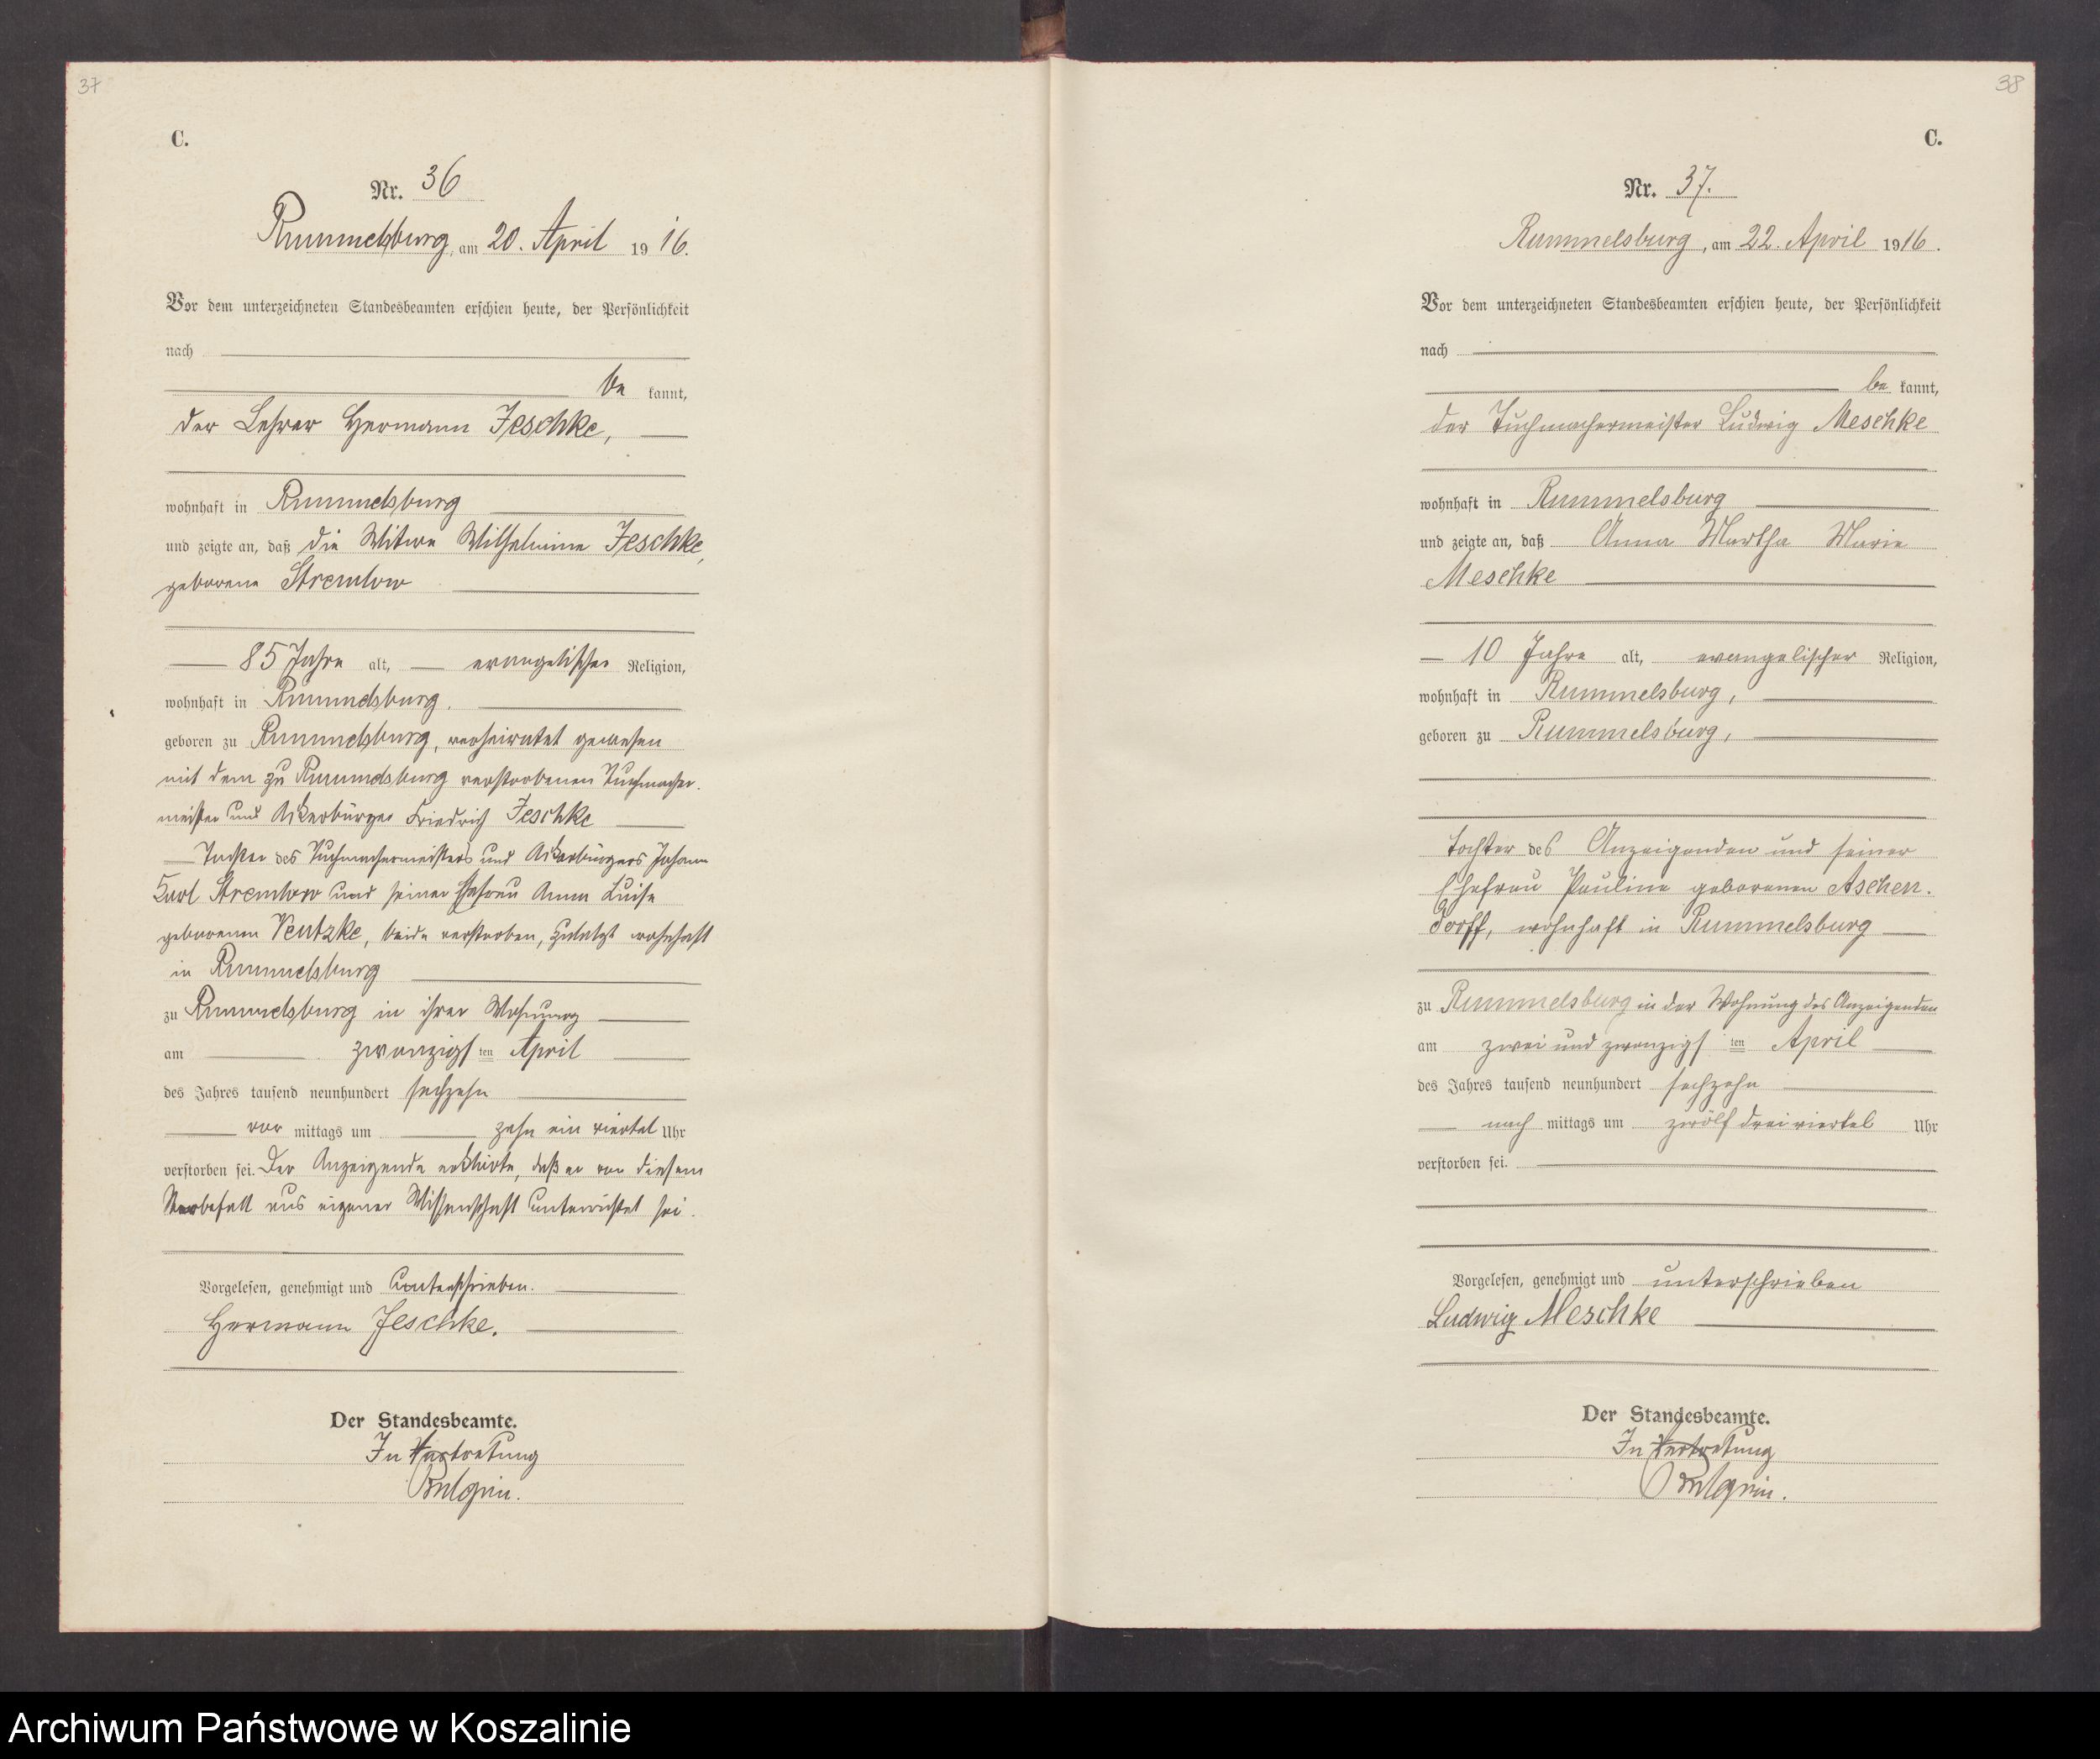 37
C.
Nr. 36
Rummelsburg, am 20. April 1916.
Vor dem unterzeichneten Standesbeamten erschien heute, der Persönlichkeit
nach
be kannt,
der Lehrer Hermann Jeschke,
wohnhaft in Rummelsburg
und zeigte an, daß die Witwe Wilhelmine Jeschke,
geborene Stremlow
85 Jahre alt, evangelischer Religion,
wohnhaft in Rummelsburg.
geboren zu Rummelsburg, verheiratet gewesen
mit dem zu Rummelsburg verstorbenen Tuchmacher-
meister und Ackerbürger Friedrich Jeschke
Tochter des Tuchmachermeisters und Ackerbürgers Johann
Karl Stremlow und seiner Ehefrau Anna Luise
geborenen Ventzke, beide verstorben, zuletzt wohnhaft
in Rummelsburg
zu Rummelsburg in ihrer Wohnung
am zwanzigsten April
des Jahres tausend neunhundert sechzehn
vor mittags um zehn ein viertel Uhr
verstorben sei. Der Anzeigende erklärte, daß er von diesem
Sterbefall aus eigener Wissenschaft unterrichtet sei.
Vorgelesen, genehmigt und unterschrieben.
Hermann Jeschke.
Der Standesbeamte.
In Vertretung
38
C.
Nr. 37.
Rummelsburg, am 22. April 1916.
Vor dem unterzeichneten Standesbeamten erschien heute, der Persönlichkeit
nach
be kannt,
der Tuchmachermeister Ludwig Meschke
wohnhaft in Rummelsburg
und zeigte an, daß Anna Martha Marie
Meschke
10 Jahre alt, evangelischer Religion,
wohnhaft in Rummelsburg,
geboren zu Rummelsburg,
Tochter des Anzeigenden und seiner
Ehefrau Pauline geborenen Aschen-
dorff, wohnhaft in Rummelsburg
zu Rummelsburg in der Wohnung des Anzeigenden
am zwei und zwanzigsten April
des Jahres tausend neunhundert sechzehn
nach mittags um zwölf drei viertel Uhr
verstorben sei.
Vorgelesen, genehmigt und unterschrieben
Ludwig Meschke
Der Standesbeamte.
In Vertretung
Archiwum Państwowe w Koszalinie